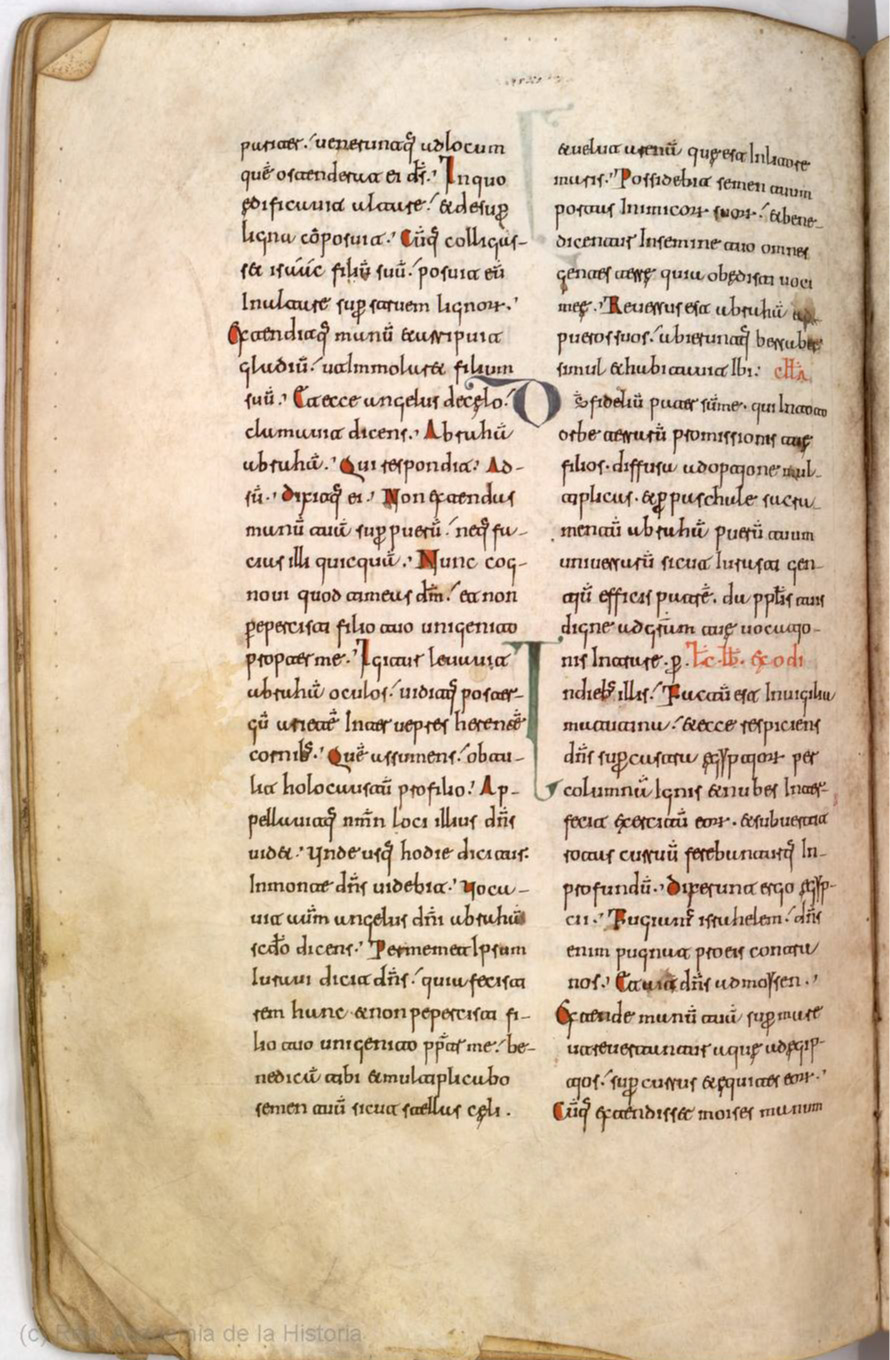 pariter. uenerunatq̄ ad locum
quē ostenderat ei ds̄. In quo
ędificauit altare. & desup̄
ligna cōposuit. Cūq̄ colligas-
s& isaac filiū suū. posuit eū
In altare sup̄ struem lignor̄.
Extenditq̄ manū & arripuit
gladiū. ut Immolar& filium
suū. Et ecce angelus de cęlo.
clamauit dicens. Abrahā
abrahā. Qui respondit. Ad-
sū. dixitq̄ ei. Non extendas
manū tuā sup̄ puerū. neq̄ fa-
cias illi quicquā. Nunc cog-
noui quod times dm̄. et non
pepercisti filio tuo unigenito
propter me. Igitur leuauit
abrahā oculos. uiditq̄ poster-
gū arietē Inter uepres herentē
cornib;. Quē assumens. obtu-
lit holocaustū pro filio. Ap-
pellauitq̄ nm̄n loci illius dn̄s
uid&. Unde usq̄ hodie dicitur.
In monte dn̄s uidebit. Uoca-
uit aūm angelus dn̄i abrahā
scdo dicens. Per memet Ipsum
Iuraui dicit dn̄s. quia fecisti
rem hanc & non pepercisti fi-
lio tuo unigenito pp̄ter me. be-
nedicā tibi & multiplicabo
semen tuū sicut stellas cęli.
& uelut arenā quę est In litore
maris. Possidebit semen tuum
portas Inimicor̄ suor̄. & bene-
dicentur In semine tuo omnes
gentes terrę quia obedisti uoci
męę. Reuersus est abrahā ad
pueros suos. abieruntq̄ bersabeę
simul & habitauit Ibi.
Ds̄ fideliū pater sūme. qui In toto
orbe terrarū promissionis tuę
filios. diffusa adoptione mul-
tiplicas. & p̄ paschale sacra-
mentū abrahā puerū tuum
uniuersarū sicut Iurasti gen-
tiū efficis patrē. da pp̄lis tuis
digne ad gr̄am tuę uocatio-
nis Intrare. p̄. Lc̄ lib̄. exodi
In dieb; illis. Factū est In uigilia
matutina. & ecce respiciens
dn̄s sup̄ castra ęgyptior̄ per
columnā Ignis & nubes Inter-
fecit exercitū eor̄. & subuertit
rotas curruū ferebanturq̄ In
profundū. dixerunt ergo ęgyp-
tii. Fugiam' israhelem. dn̄s
enim pugnat pro eis contra
nos. Et ait dn̄s ad moysen.
Extende manū tuā sup̄ mare
ut reuertantur aquę ad ęgip-
tios. sup̄ currus & equites eor̄.
Cūq̄ extendisset moises manum